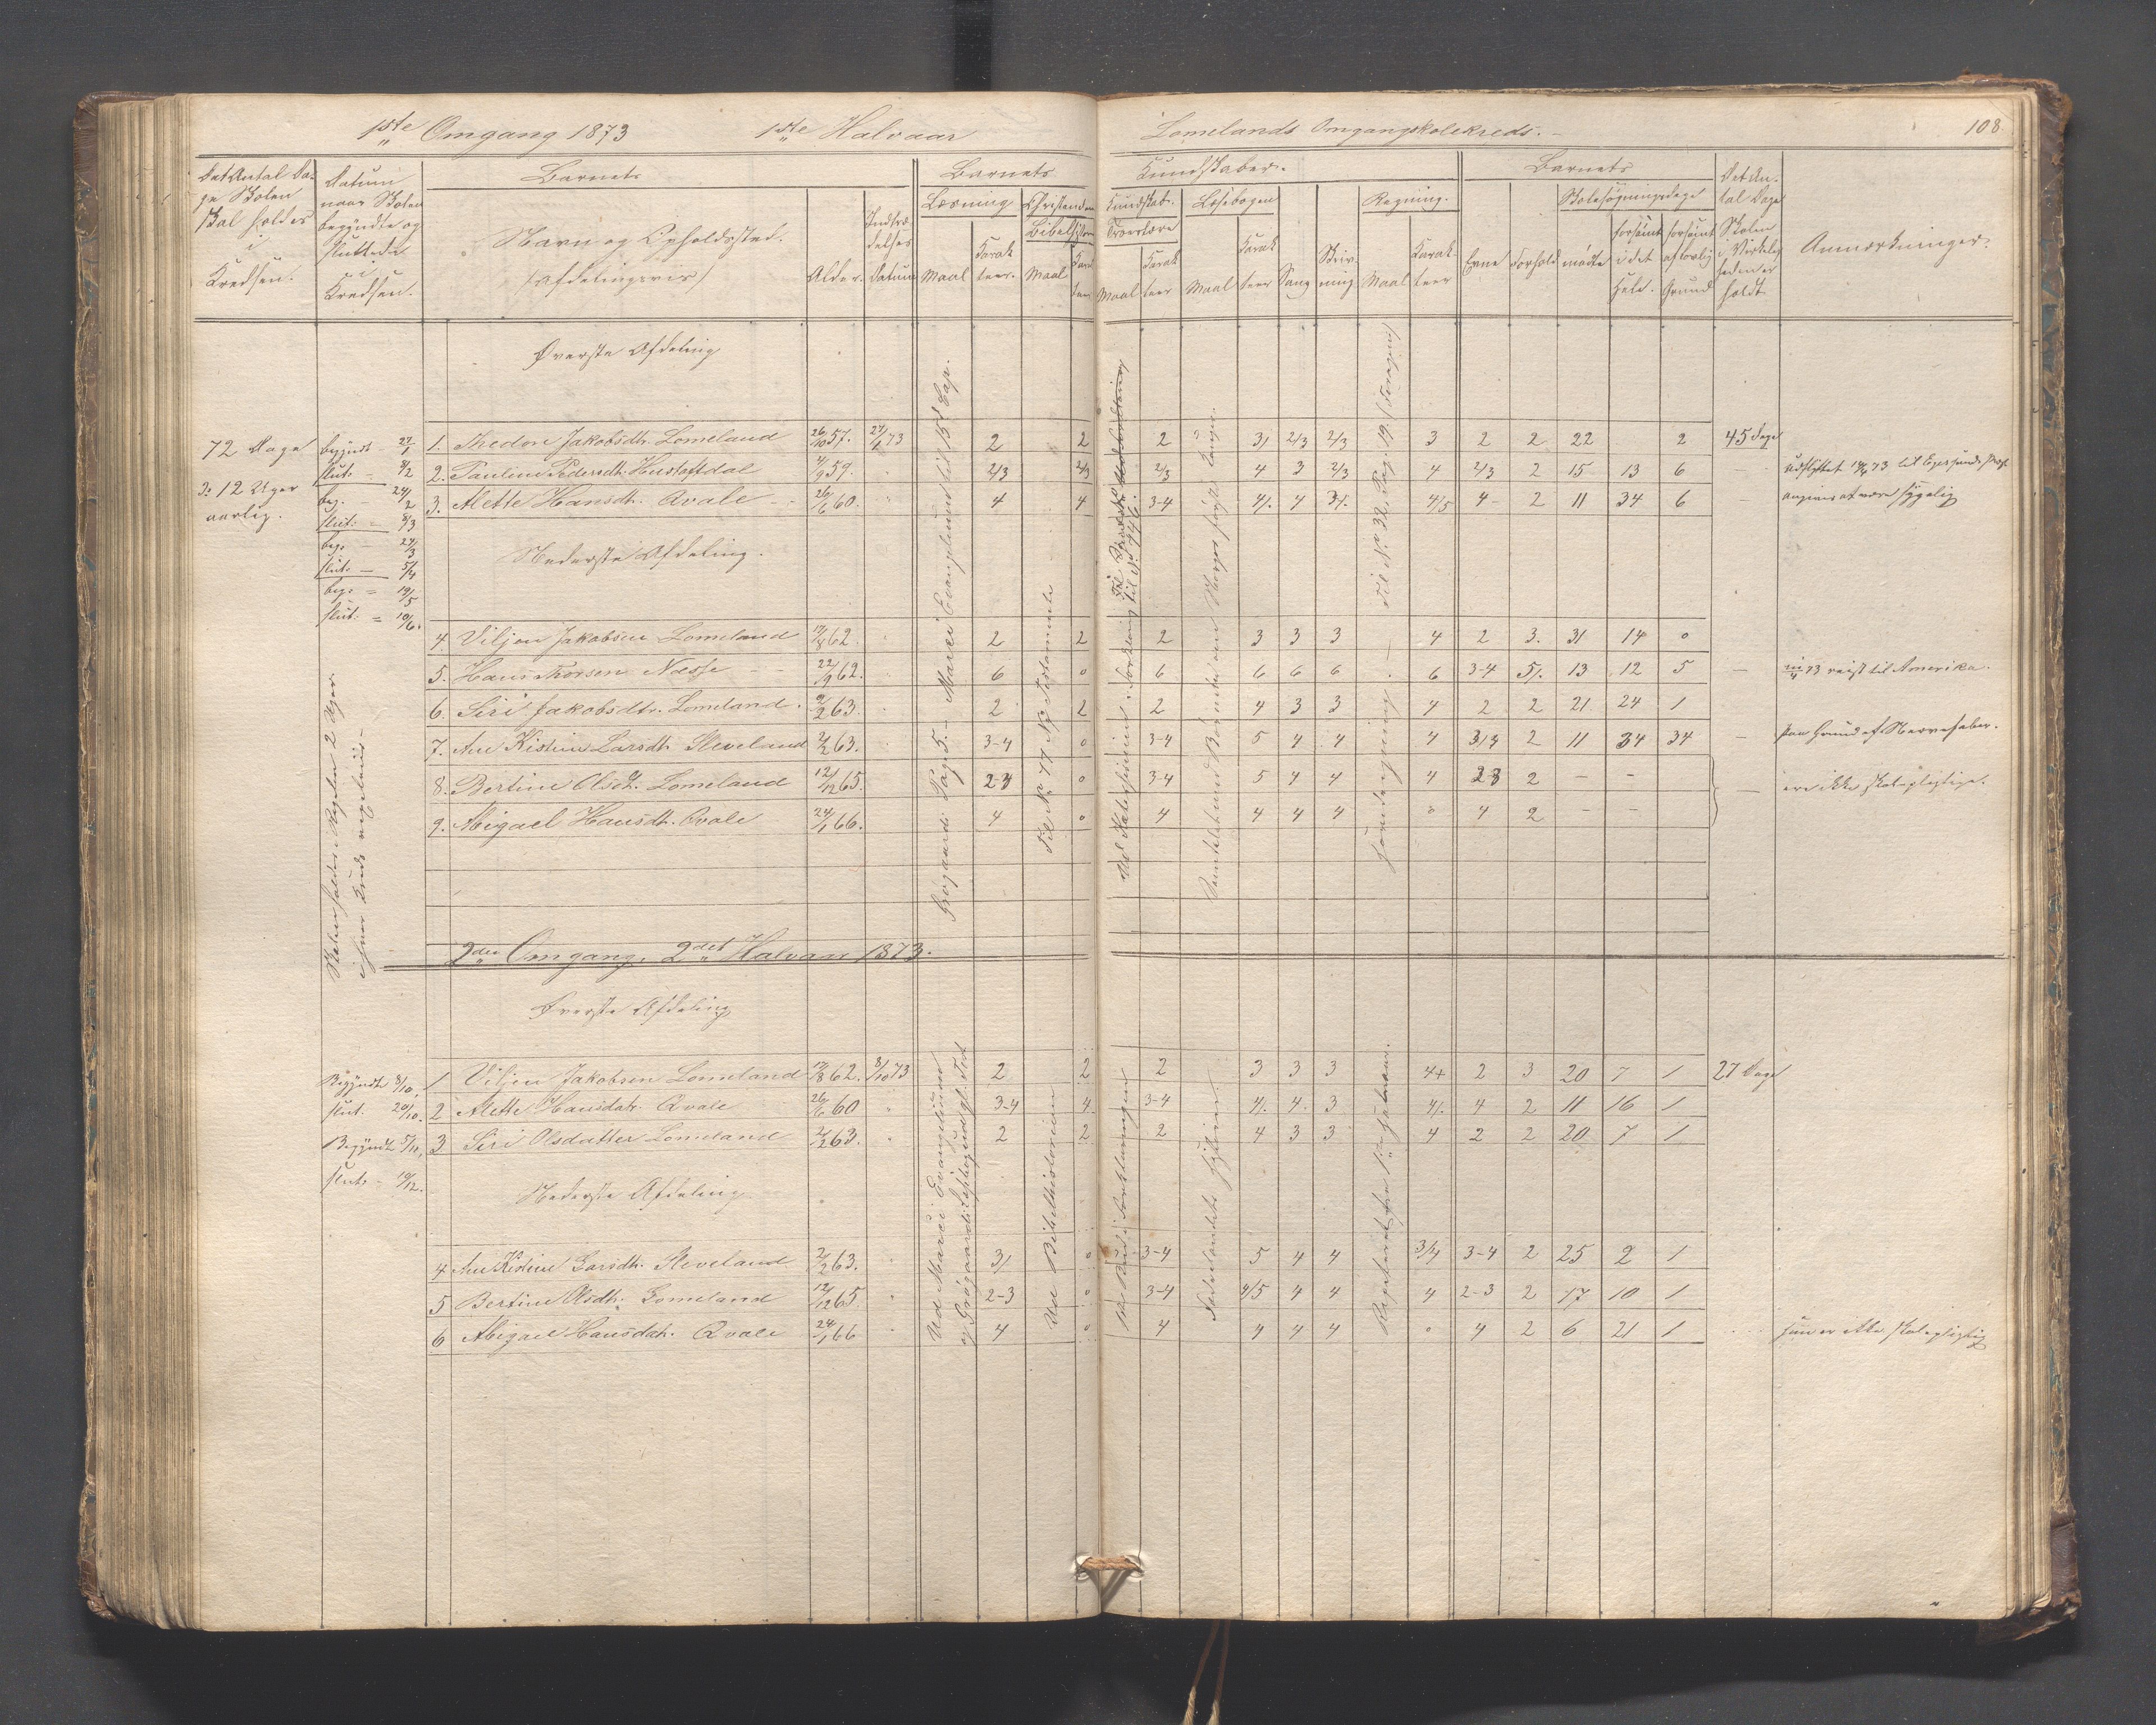 1ste Omgang 1873 1ste Halvaar Lomelands Omgangskolekreds. 108.
Det Antal Dage Skolen skal holdes i Kredsen.
Datum naar Skolen begyndte og sluttede i Kredsen.
Barnets
Navn og Opholdssted. (afdelingsvis)
Alder.
Indtrædelses Datum
Barnets Kundskaber.
Læsning Maal Karakteer.
Christendomskundskab.
Bibelhistorie Maal Karakteer
Troeslære Maal Karakteer
Læsebogen Maal Karakteer
Sang
Skrivning
Regning. Maal Karakteer
Barnets
Evne Forhold
Skolesøgningsdage
mødte forsømt i det Hele. forsømt af lovlig Grund
Det Antal Dage Skolen i Virkeligheden er holdt
Anmærkninger.
Øverste Afdeling
72 Dage
12 Uger aarlig.
begyndt 27/1
slut. 8/2
beg. 24/2
slut. 8/3
beg. 24/3
slut. 5/4
beg. 19/5
slut. 10/6.
1. Thedore Jakobsdtr. Lomeland 26/10 57. 27/1 73 2 2 2 3/ 2/3 2/3 3 2 2 22 2 45 Dage
2. Pauline Pedersdtr. 4/9 59. 2/3 2/3 2/3 4 3 2/3 4 2/3 2 15 13 6 udflyttet 73 til Egersunds
3. Alette Hansdtr. Qvale 26/6 60. 4 4 3-4 4/. 4 3/. 4/5 4 2 11 34 6 angives at være sygelig
Nederste Afdeling.
4. Viljen Jakobsen Lomeland 17/8 62. 2 2 2 3 3 3 4 2 3. 31 14 0
5. Hans Thorsen Nesse 22/9 62. 6 0 6 6 6 6 6 3-4 5/. 13 12 5 73 reist til Amerika.
6. Siri Jakobsdtr. Lomeland. 9/2 63. 2 2 2 4 3 3 4 2 2 21 24 1
7. Ane Kistine Larsdtr. Sleveland 2/2 63. 3-4 0 3-4 5 4 4 4 2 11 34 34 paa Grund af Nervefeber.
8. Bertine Olsdtr. Lomeland 12/12 65. 2-3 0 3-4 5 4 4 4 2-3 2 - -
ere ikke skolepligtige.
9. Abigael Hansdtr. Qvale 24/1 66. 4 0 4 4 4 4 0 4 2 - -
Skolen holdes 2 Uger
i hver Kreds
Grøgaards Pag. 5. – Marci Evangelium til 15de Cap.
Til No. 77 Nye Testamente
Forklaring til No. 446.
Til No. 32, Pag. 19. (Foregaaende)
2den Omgang, 2det Halvaar 1873.
Øverste Afdeling
Begyndt 8/10,
slut. 20/10.
Begyndt 5/11,
slut. 19/12.
1 Viljen Jakobsen Lomeland 17/8 62. 8/10 73 2 2 2 3 3 3 4+ 2 3 20 7 1 27 Dage
2 Alette Hansdatr. Qvale 26/6 60 3-4 4 3-4 4/. 4. 3 4/. 4 2 11 16 1
3 Siri Olsdatter Lomeland 2/2 63. 2 2 2 4 3 3 4 2 2 20 7 1
Nederste Afdeling
4 Ane Kistine Larsdtr. Sleveland 2/2 63. 3/ 0 3-4 5 4 4 3/4 3-4 2 25 2 1
5 Bertine Olsdtr. Lomeland 12/12 65. 2-3 0 3-4 4/5 4 4 4 2-3 2 17 10 1
6 Abigael Hansdatr. Qvale 24/1 66 4 0 4 4 4 4 0 4 2 6 21 1 hun er ikke skolepligtig
Ud Marci Evangelium
Ud Bibelhistorien
Fædrelandets Historie
Repeteret fra 1ste Halvaar.